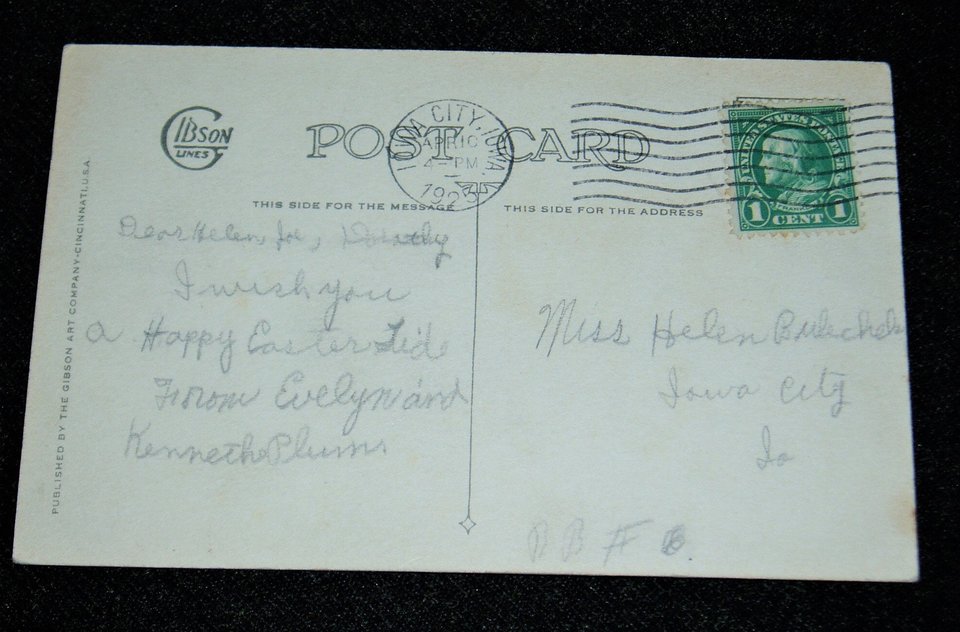 GIBSON
LINES
POST CARD
IOWA CITY, IOWA.
APR 10
4 - PM
1925
UNITED STATES POSTAGE
FRANKLIN
1 CENT 1
THIS SIDE FOR THE MESSAGE
THIS SIDE FOR THE ADDRESS
PUBLISHED BY THE GIBSON ART COMPANY-CINCINNATI,U.S.A.
Dear Helen, Joe, Dorothy
I wish you
a Happy Easter Tide
From Evelyn and
Kenneth Plum
Miss Helen
Iowa City
Io